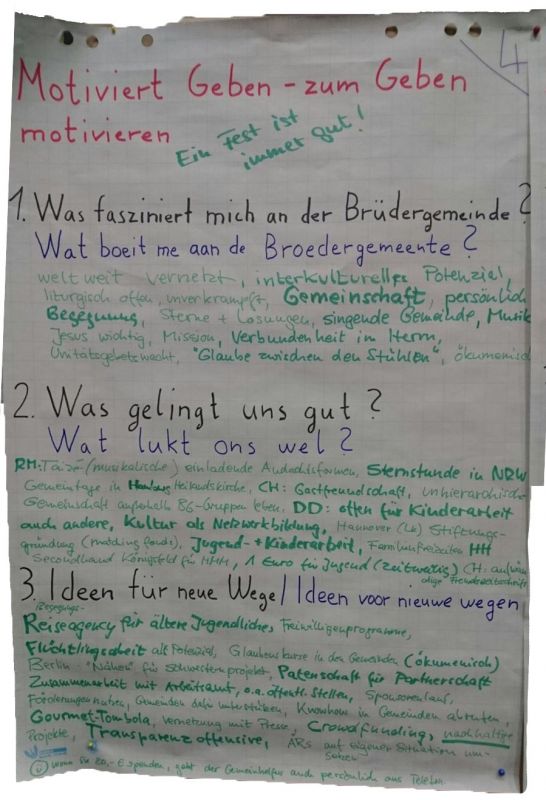 4
Motiviert Geben - zum Geben
motivieren
Ein Fest ist
immer gut!
1. Was fasziniert mich an der Brüdergemeinde?
Wat boeit me aan de Broedergemeente?
weltweit vernetzt, interkulturelles Potenzial,
liturgisch offen, unverkrampft, Gemeinschaft, persönliche
Begegnung, Sterne + Losungen, singende Gemeinde, Musik
Jesus wichtig, Mission, Verbundenheit im Herrn,
Unitätsgebetswacht, "Glaube zwischen den Stühlen", ökumenisch
2. Was gelingt uns gut?
Wat lukt ons wel?
RM: Taizé (musikalische) einladende Andachtsformen, Sternstunde in NRW
Gemeintage in Heilandskirche, CH: Gastfreundschaft, unhierarchische
Gemeinschaft außerhalb BG-Gruppen leben, DD: offen für Kinderarbeit
auch andere, Kultur als Netzwerkbildung, Hannover (Lk) Stiftungs-
gründung (matching fonds), Jugend- + Kinderarbeit, Familienfreizeiten HH
Secondhand Königsfeld für HMH, 1 Euro für Jugend (zeitweise) CH:
3. Ideen für neue Wege / Ideen voor nieuwe wegen
Begegnungs-
Reiseagency für ältere Jugendliche, Freiwilligenprogramme,
Flüchtlingsarbeit als Potenzial, Glaubenskurse in den Gemeinden (ökumenisch)
Berlin "Nähen" für Schwesternprojekt, Patenschaft für Partnerschaft
Zusammenarbeit mit Arbeitsamt, o.a. öffentl. Stellen, Sponsorenlauf,
Förderungen nutzen, Gemeinden dafür unterstützen, Knowhow in Gemeinden abrufen,
Gourmet-Tombola, Vernetzung mit Presse, Crowdfunding, nachhaltige
Projekte, Transparenzoffensive, ARs auf eigener Situation um-
setzen
Wenn Sie 20,-€ spenden, geht der Gemeinhelfer auch persönlich ans Telefon.